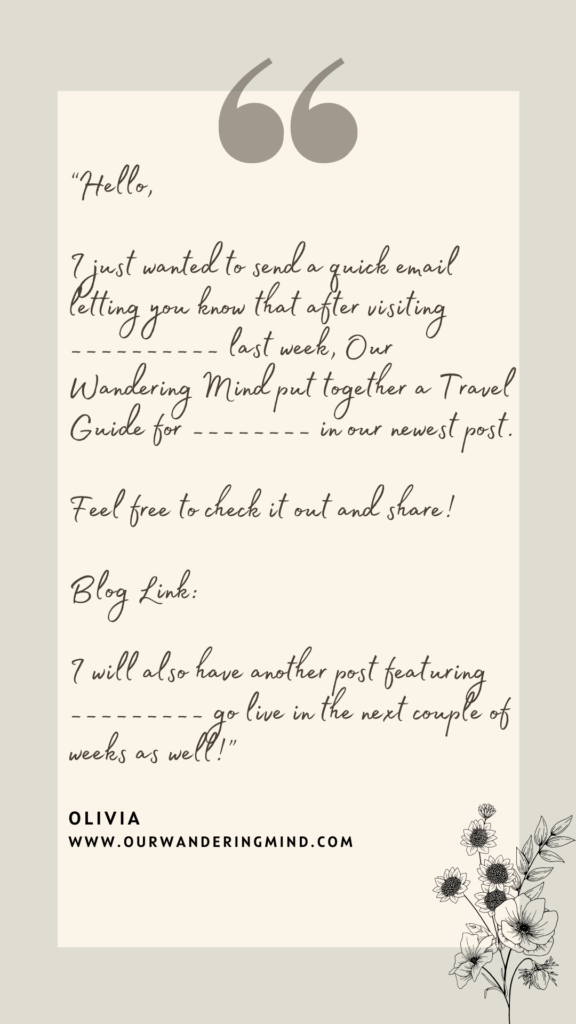 “Hello,
I just wanted to send a quick email
letting you know that after visiting
---------- last week, Our
Wandering Mind put together a Travel
Guide for -------- in our newest post.
Feel free to check it out and share!
Blog Link:
I will also have another post featuring
--------- go live in the next couple of
weeks as well!”
OLIVIA
WWW.OURWANDERINGMIND.COM